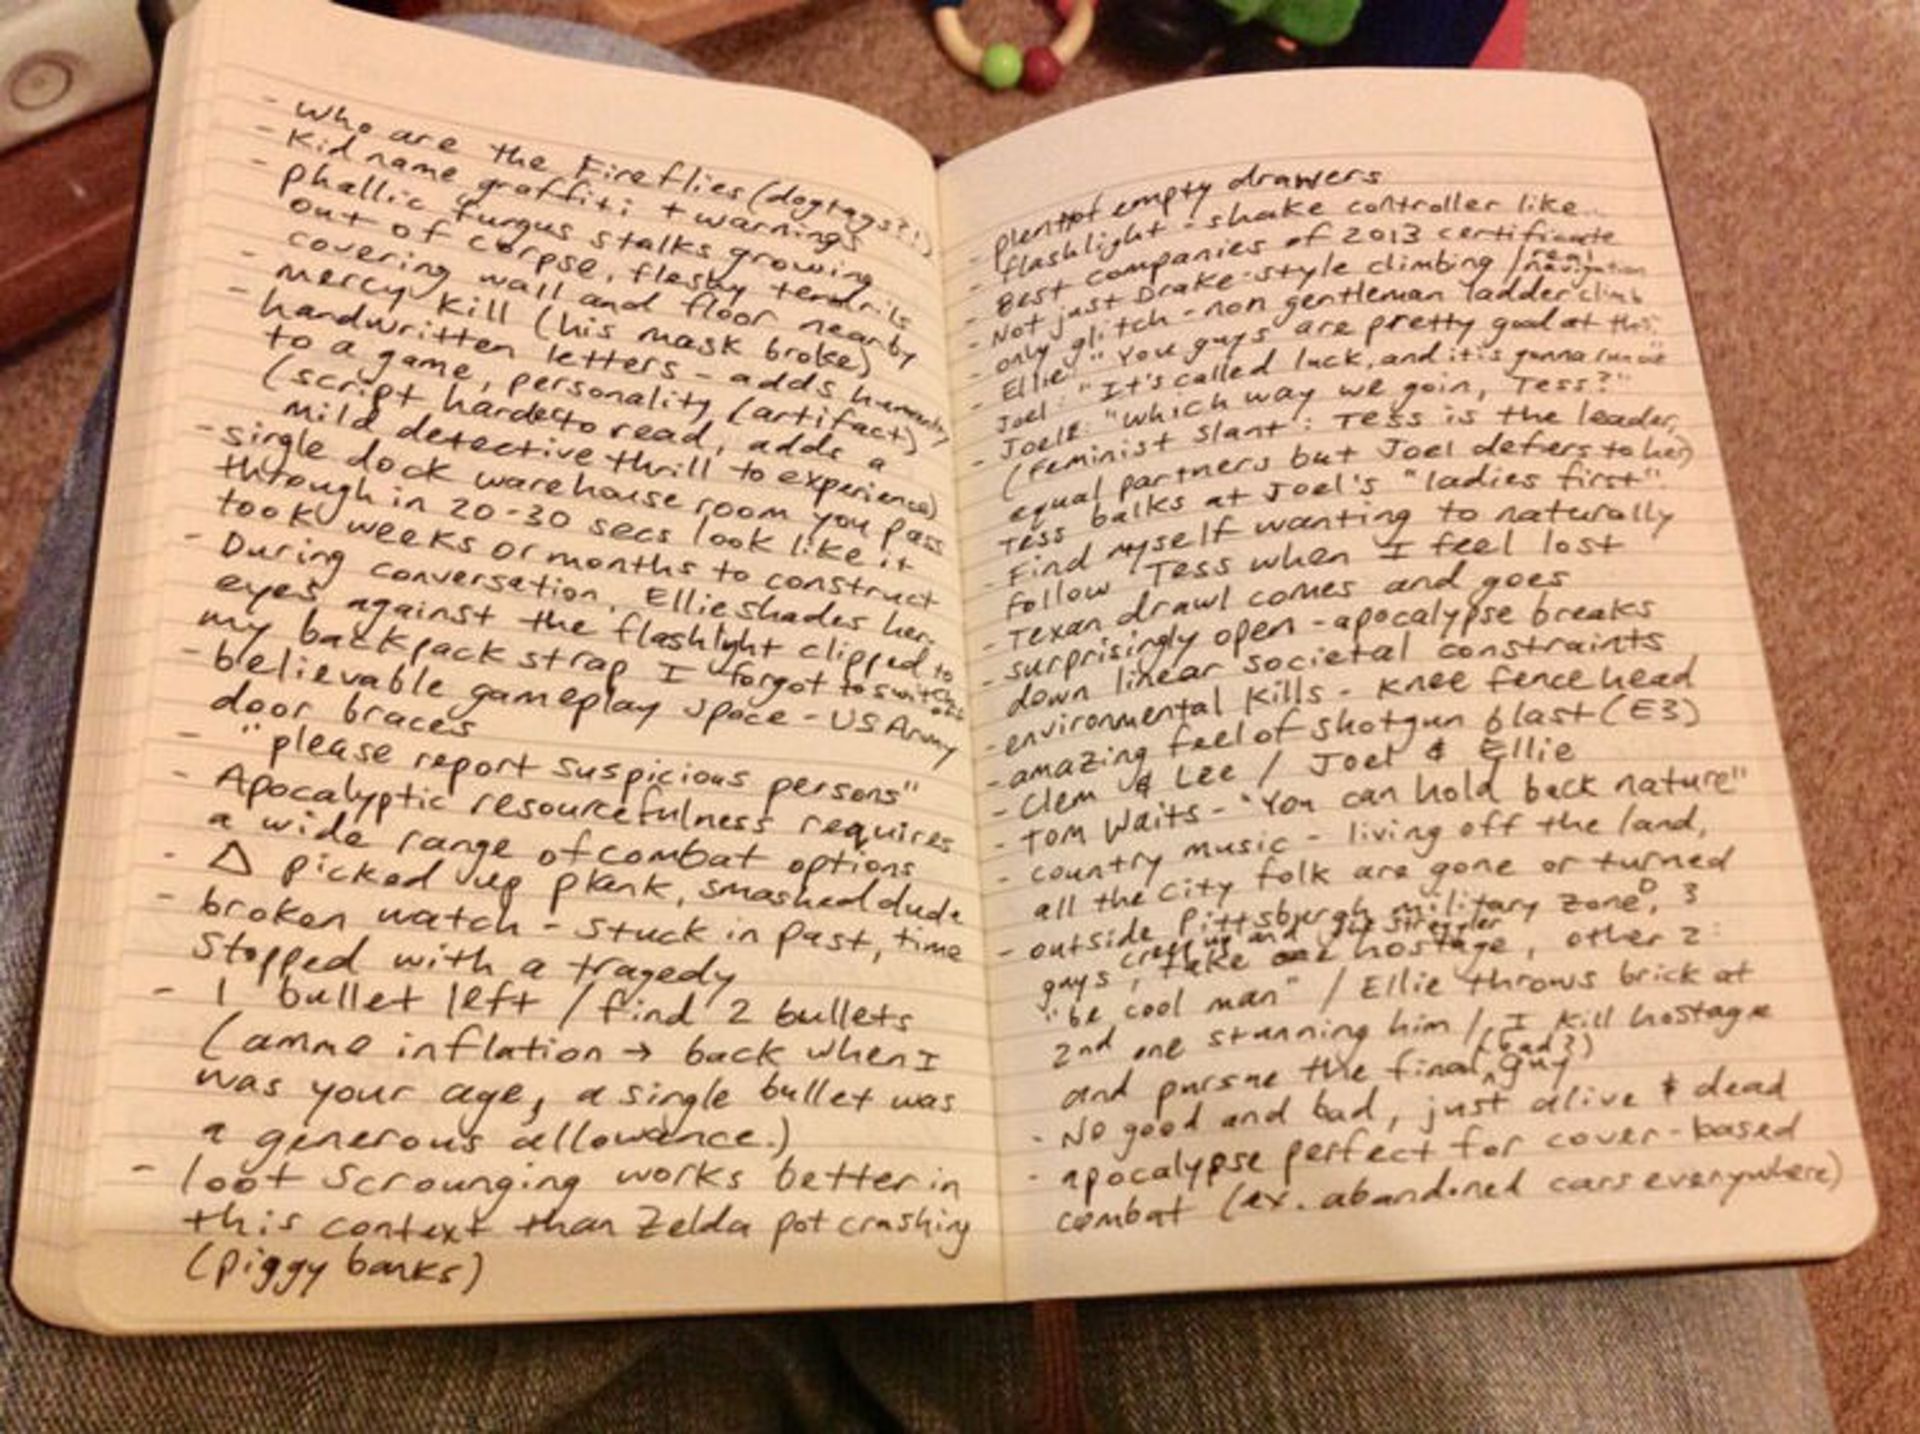 - Who are the Fireflies (dogtags?!)
- Kid name graffiti + warnings
- phallic fungus stalks growing
out of corpse, fleshy tendrils
covering wall and floor nearby
- mercy kill (his mask broke)
- handwritten letters - adds humanity
to a game, personality, (artifact)
(script harder to read, adds a
mild detective thrill to experience)
- single dock warehouse room you pass
through in 20-30 secs look like it
took weeks or months to construct
- During conversation, Ellie shades her
eyes against the flashlight clipped to
my backpack strap I forgot to switch off
- believable gameplay space - US Army
door braces
- "please report suspicious persons"
- Apocalyptic resourcefulness requires
a wide range of combat options
- △ picked up plank, smashed dude
- broken watch - stuck in past, time
stopped with a tragedy
- 1 bullet left / find 2 bullets
(ammo inflation → back when I
was your age, a single bullet was
a generous allowance.)
- loot scrounging works better in
this context than Zelda pot crashing
(piggy banks)
- plenty of empty drawers
- flashlight - shake controller like
- Best companies of 2013 certificate
- Not just Drake-style climbing / real navigation
- only glitch - non gentleman ladder climb
- Ellie: "You guys are pretty good at this."
Joel: "It's called luck, and it's gonna run out
- Joel: "which way we goin, Tess?"
(Feminist slant: Tess is the leader,
equal partners but Joel defers to her)
Tess balks at Joel's "ladies first".
- Find myself wanting to naturally
follow Tess when I feel lost
- Texan drawl comes and goes
- surprisingly open - apocalypse breaks
down linear societal constraints
- environmental kills - knee fence head
- amazing feel of shotgun blast (E3)
- Clem & Lee / Joel & Ellie
- Tom Waits - "You can hold back nature"
- country music - living off the land,
all the city folk are gone or turned
- outside Pittsburgh military zone, 3
guys, creep up and take hostage, other 2:
"be cool man" / Ellie throws brick at
2nd one stunning him / I kill hostage
and pursue the final (bad?) guy
- No good and bad, just alive & dead
- apocalypse perfect for cover-based
combat (ex. abandoned cars everywhere)